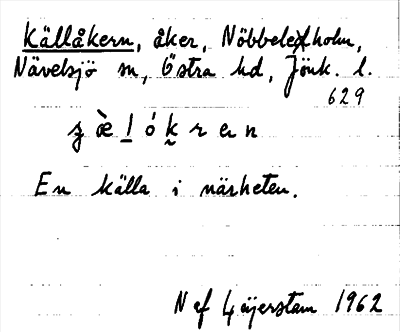 Källåkern, åker, Nöbbeleholm,
Nävelsjö sn, Östra hd, Jönk. l.
629
En källa i närheten.
N af Geijerstam 1962